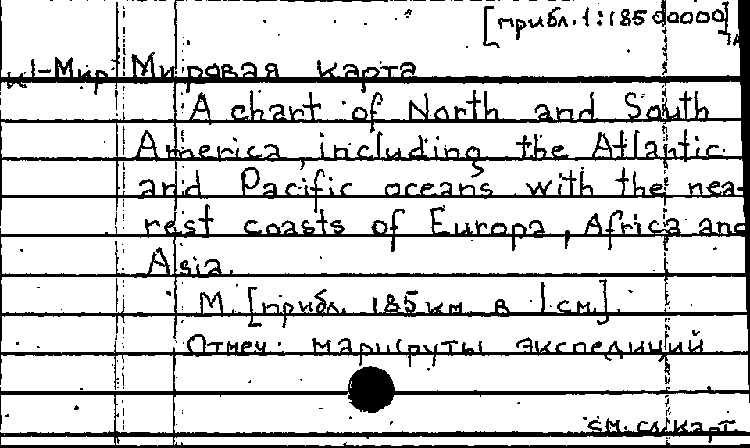 [прибл. 1:18500000]
Мир Мировая карта
A chart of North and South
America, including the Atlantic
and Pacific oceans with the nea-
rest coasts of Europa, Africa and
Asia.
М. [прибл. 185 км. в 1 см.].
Отмеч: маршруты экспедиций
см. сл. карт.